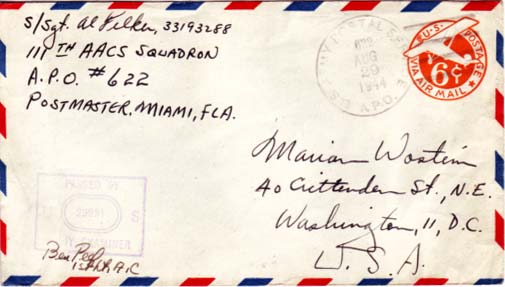 S/Sgt. Al Felker, 33193288
111TH AACS SQUADRON
A.P.O. #622
POSTMASTER, MIAMI, FLA.
U.S. ARMY POSTAL SERVICE
AUG
29
1944
A.P.O.
U.S. POSTAGE
6¢
VIA AIR MAIL
Marian Wostein
40 Crittenden St., N.E.
Washington, 11, D.C.
U.S.A.
PASSED BY
U S
ARMY EXAMINER
Ben